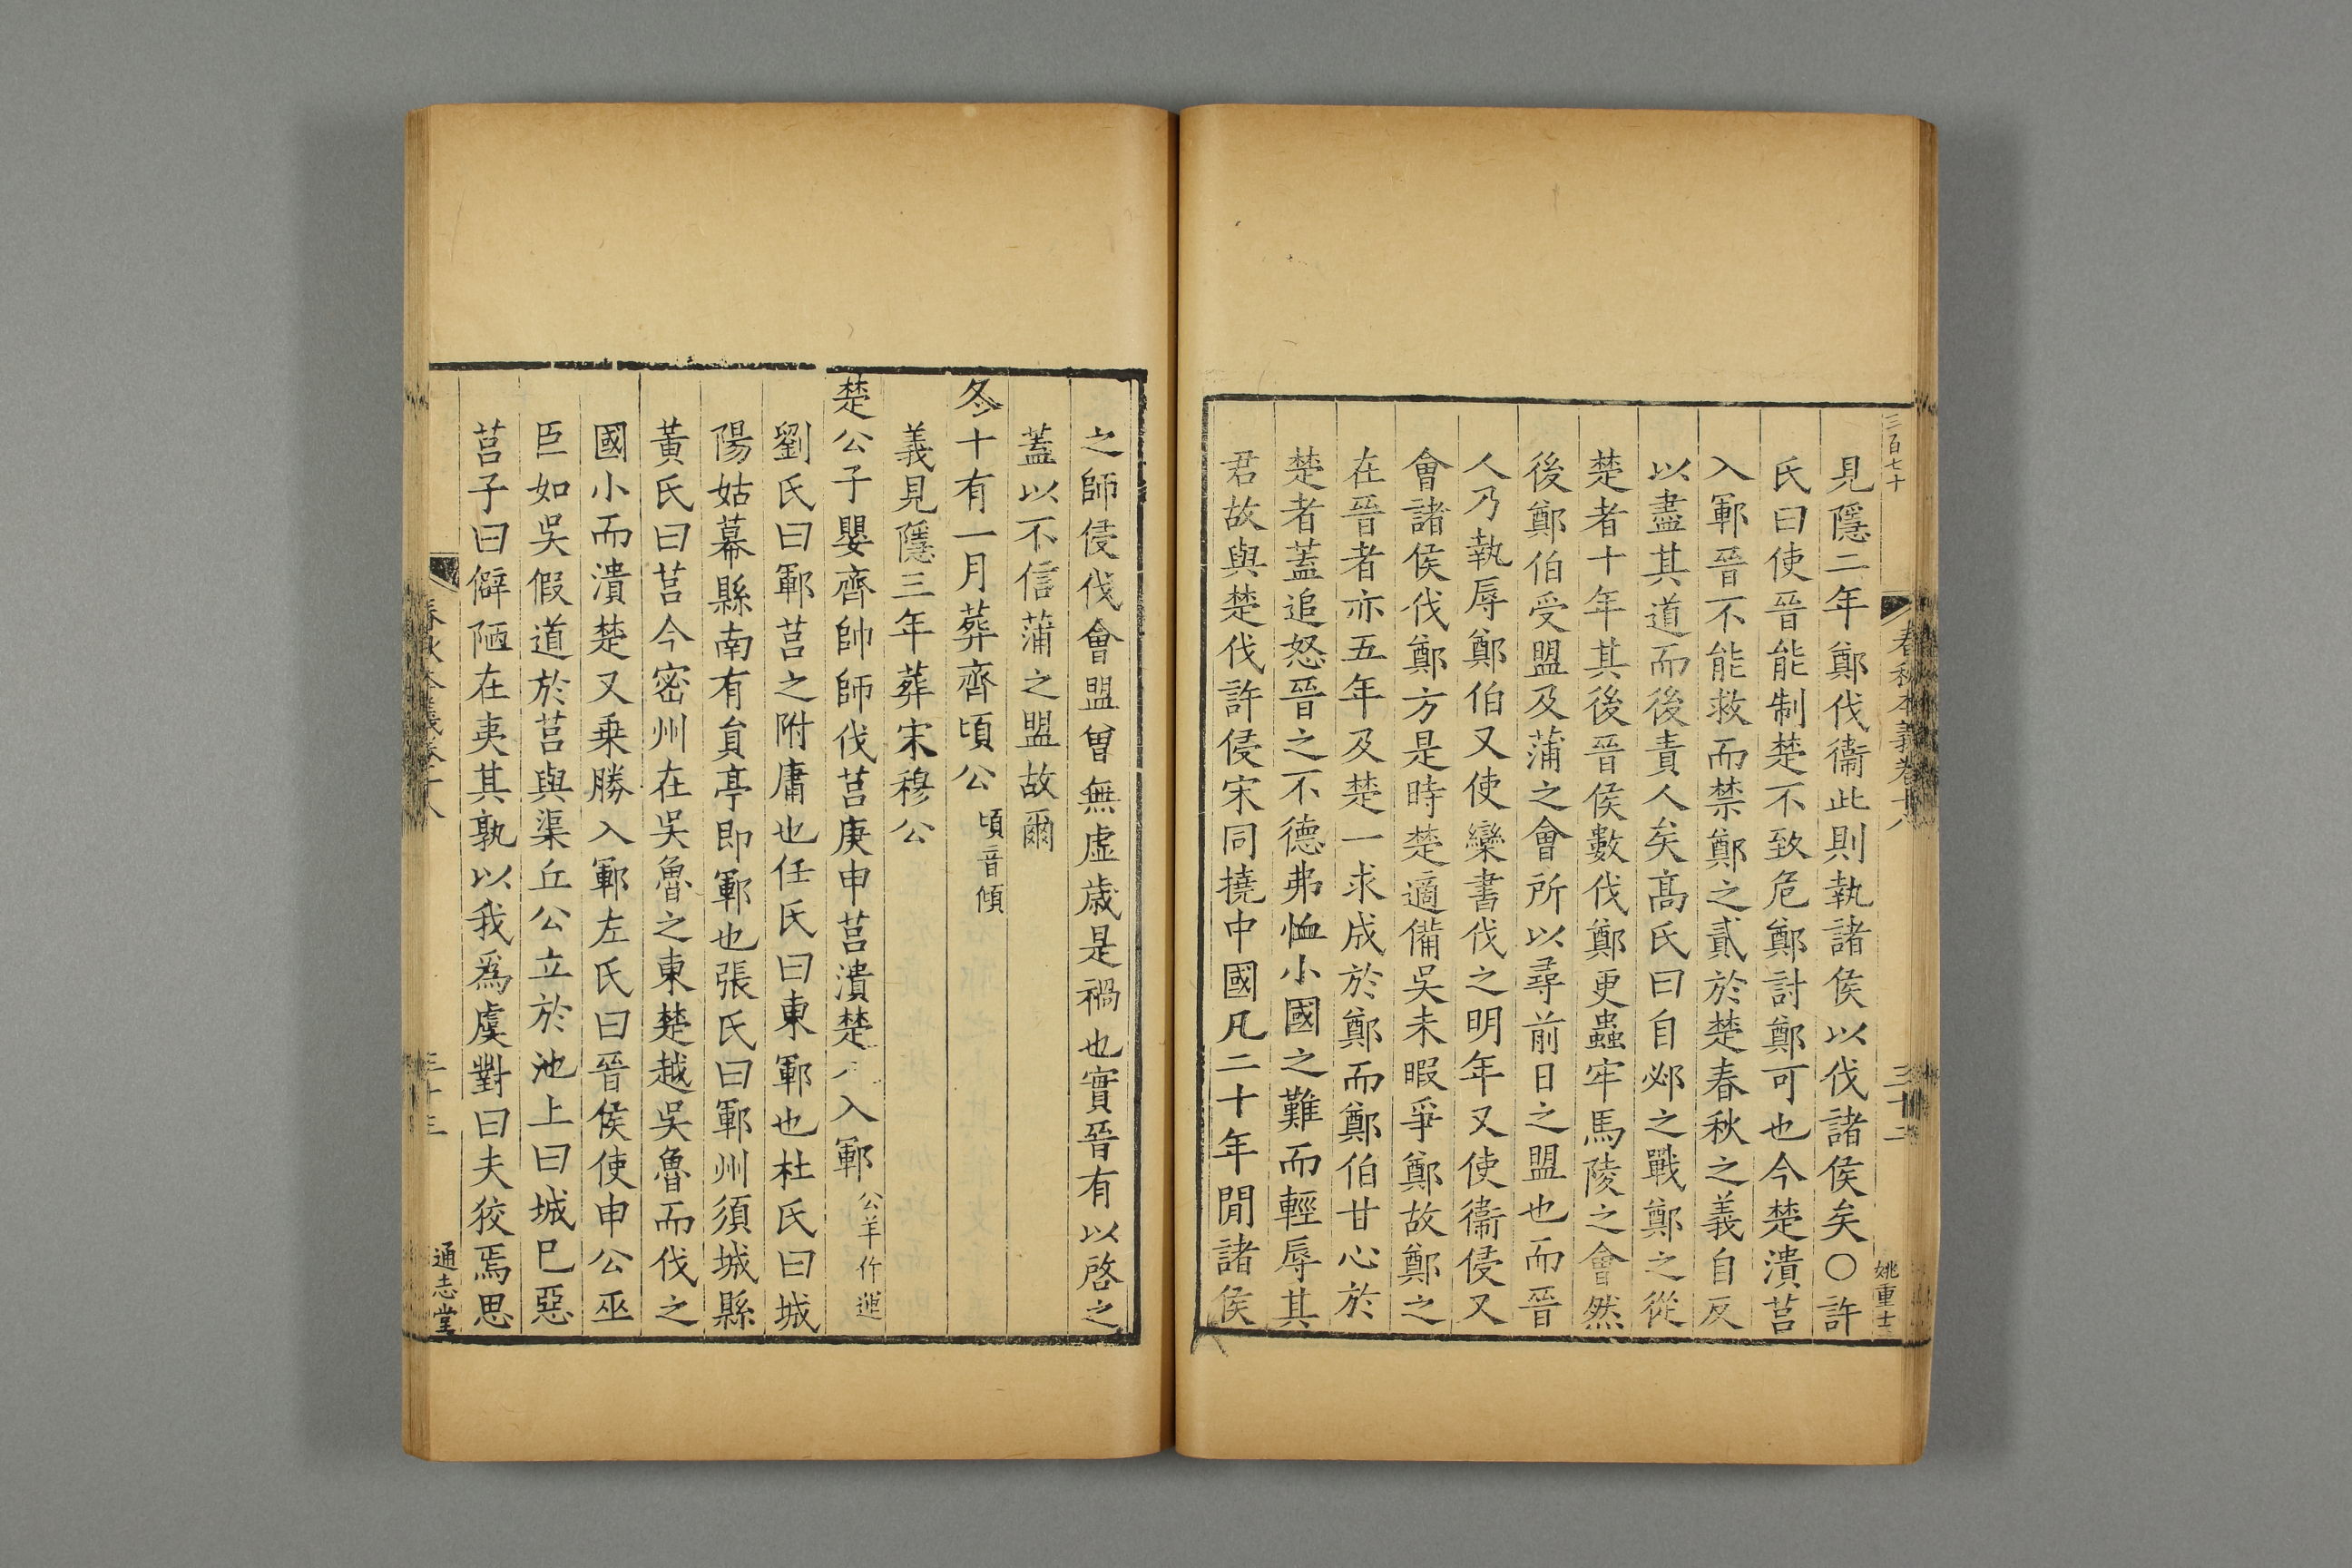 三百七十
春秋本義卷十八
三十二
姚重士
見隱二年鄭伐衞此則執諸侯以伐諸侯矣○許
氏曰使晉能制楚不致危鄭討鄭可也今楚潰莒
入鄆晉不能救而禁鄭之貳於楚春秋之義自反
以盡其道而後責人矣髙氏曰自邲之戰鄭之從
楚者十年其後晉侯數伐鄭更蟲牢馬陵之會然
後鄭伯受盟及蒲之會所以尋前日之盟也而晉
人乃執辱鄭伯又使欒書伐之明年又使衞侵又
會諸侯伐鄭方是時楚適備吳未暇爭鄭故鄭之
在晉者亦五年及楚一求成於鄭而鄭伯甘心於
楚者蓋追怒晉之不德弗恤小國之難而輕辱其
君故與楚伐許侵宋同撓中國凡二十年閒諸侯
之師侵伐會盟曾無虛歲是禍也實晉有以啓之
蓋以不信蒲之盟故爾
冬十有一月葬齊頃公頃音傾
義見隱三年葬宋穆公
楚公子嬰齊帥師伐莒庚申莒潰楚入鄆公羊作運
劉氏曰鄆莒之附庸也任氏曰東鄆也杜氏曰城
陽姑幕縣南有員亭即鄆也張氏曰鄆州須城縣
黃氏曰莒今密州在吳魯之東楚越吳魯而伐之
國小而潰楚又乗勝入鄆左氏曰晉侯使申公巫
臣如吳假道於莒與渠丘公立於池上曰城已惡
莒子曰僻陋在夷其孰以我爲虞對曰夫狡焉思
春秋本義卷十八
三十三
通志堂